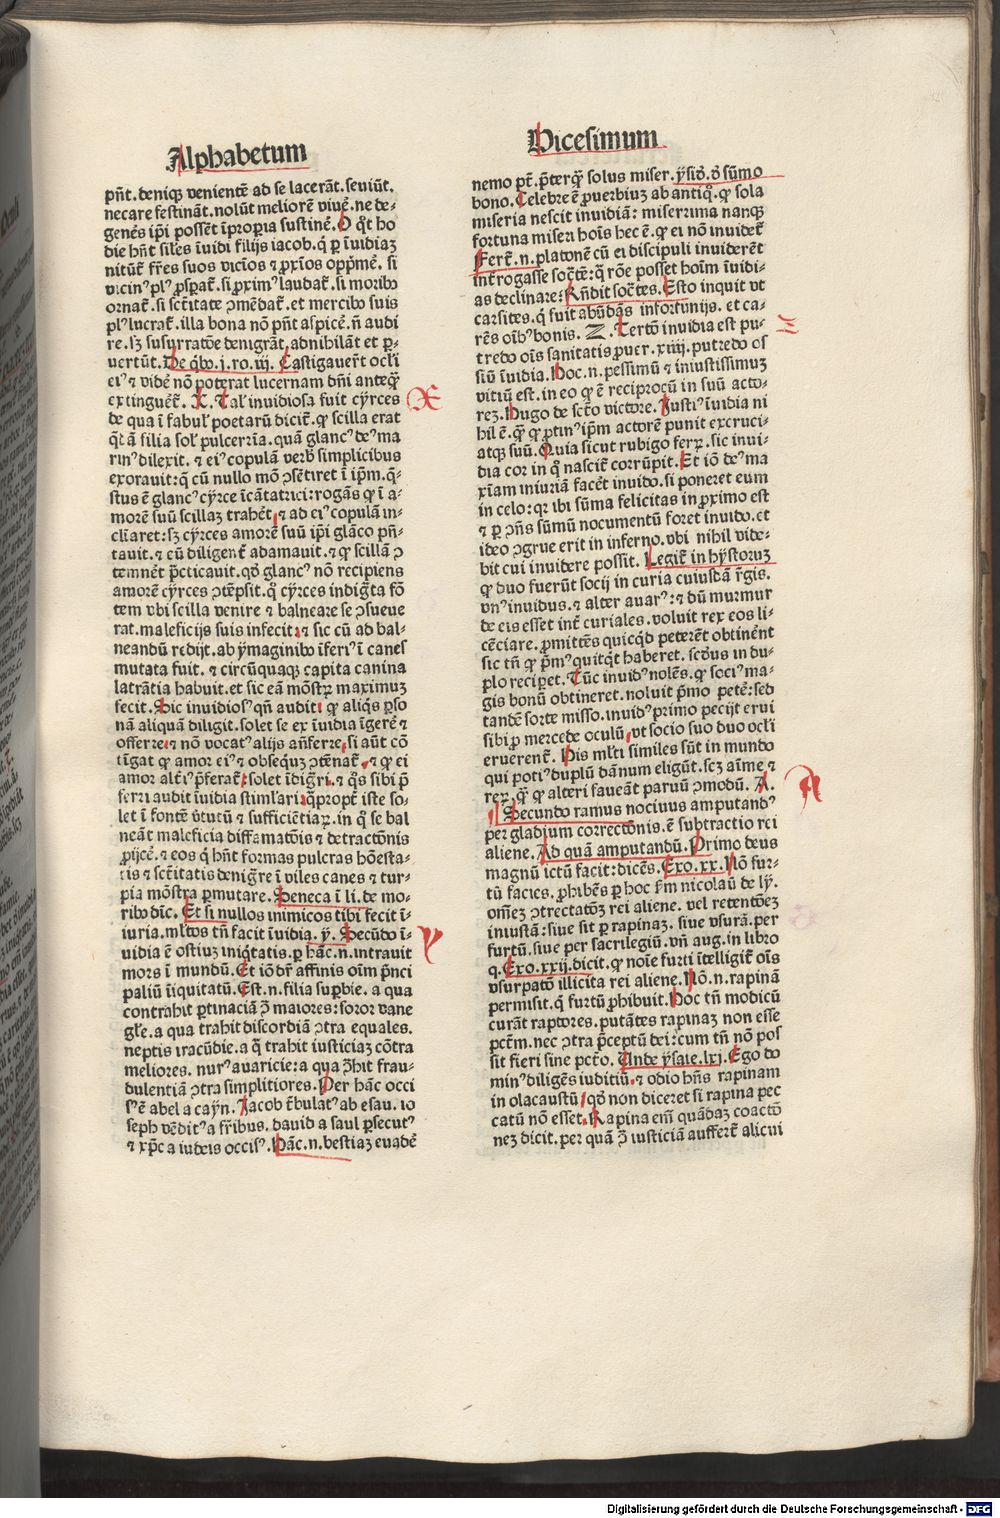 Alphabetum
pn̄t. deniqꝫ venientē ad se lacerāt. seviūt.
necare festināt. nolūt meliorē viuē. ne de-
genēs ip̄i possēt īpropria sustinē. O qͣt ho
die hn̄t siłes īuidi filijs iacob. qͥ ꝑ īuidiaꝫ
nitūt̄ fr̄es suos vicīos ⁊ ꝓxīos oppͥmē. si
vicin⁹ pl⁹ ꝓsꝑat̄. si ꝓxim⁹ laudat̄. si moribꝰ
ornat̄. si sctītate ꝯmēdat̄. et mercibꝰ suis
pl⁹ lucrat̄. illa bona nō pn̄t aspicē. n̄ audi
re. sꝫ susurratōe denigrāt. adnihilāt et ꝑ-
uertūt. De qͥbꝰ. j. ro. iij. Castigauer̄t ocl̄i
ei⁹ ⁊ vidē nō poterat lucernam dn̄i anteqͣꝫ
extinguēt̄. X. Tał invidiosa fuit cẏrces
de qua ī fabuł poetarū dicit̄. ꝙ scilla erat
qͣt̄ā filia soł pulcerrīa. quā glanc⁹ de⁹ ma
rin⁹ dilexit. ⁊ ei⁹ copulā verbꝰ simplicibus
exorauit: qͥ cū nullo mō ꝯsētiret ī ip̄m. qͣ-
stus ē glanc⁹ cẏrce īcātatrici: rogās ꝙ ī a-
morē suū scillaꝫ trahēt. ⁊ ad ei⁹ copulā in-
clīaret: sꝫ cẏrces amorē suū ip̄i glāco pn̄-
tauit. ⁊ eū diligent̄ adamauit. ⁊ ꝙ scillā ꝯ
temnēt ꝑcticauit. qđ glanc⁹ nō recipiens
amorē cẏrces ꝯtēpsit. qͥ cẏrces indiḡta fō
tem vbi scilla venire ⁊ balneare se ꝯsueue
rat. maleficijs suis infecit: ⁊ sic cū ad bal-
neandū redijt. ab ẏmaginibꝰ īferi⁹ ī canes
mutata fuit. ⁊ circūquaqꝫ capita canina
latrātia habuit. et sic eā mōstꝝ maximuꝫ
fecit. Sic invidios⁹ qn̄ audit. ꝙ aliqͥs ꝑso
nā aliquā diligit. solet se ex īuidia īgerē ⁊
offerre. ⁊ nō vocat⁹ alijs an̄ferre. si aūt cō
tīgat ꝙ amor ei⁹ ⁊ obsequꝫ ꝯtēnat̄. ⁊ ꝙ ei
amor alt̄i⁹ p̄ferat̄: solet īdiḡri. ⁊ qͣs sibi p̄
ferri audit īuidia stimłari. qͣꝓpt̄ iste so-
let ī fontē v̄tutū ⁊ sufficiētiaꝝ. in qͥ se bal
neāt maleficia diffamatōis ⁊ detractōnis
ꝓijcē. ⁊ eos qͥ hn̄t formas pulcras hōesta-
tis ⁊ sctītatis denigr̄e ī viles canes ⁊ tur-
pia mōstra ꝑmutare. Seneca ī li. de mo-
ribꝰ dīc. Et si nullos inimicos tibi fecit ī-
iuria. ml̄tos tn̄ facit īuidia. ẏ. Secūdo ī-
uidia ē ostiuꝫ iniqͥtatis. ꝑ hāc. n. intrauit
mors ī mundū. Et iō dr̄ affinis oīm pͥnci
paliū īiquitatū. Est. n. filia suꝑbie. a qua
contrahit ꝑtinaciā ꝯ̄ maiores: soror vane
gl̄e. a qua trahit discordiā ꝯtra equales.
neptis iracūdie. a qͣ trahit iusticiaꝫ cōtra
meliores. nur⁹ auaricie: a qua ꝯ̄hit frau-
dulentiā ꝯtra simplitiores. Per hāc occi
s⁹ ē abel a caẏn. Jacob t̄bulat⁹ ab esau. io
seph vēdit⁹ a fr̄ibus. dauid a saul ꝑsecut⁹
⁊ xp̄c a iudeis occis⁹. Hāc. n. bestiaꝫ euadē
X
Y
Vicesimum
nemo pt̄. p̄terqͣꝫ solus miser. ẏsid̄. đ sūmo
bono. Celebre ē ꝓuerbiuꝫ ab antiqͦ. ꝙ sola
miseria nescit inuidiā: miserrima nanqꝫ
fortuna miseri hoīs hec ē. ꝙ ei nō inuidet̄
Fert̄. n. platonē cū ei discipuli inuiderēt
int̄rogasse socr̄tē: qͣ rōe posset hoīm īuidi-
as declinare: Rn̄dit socr̄tes. Esto inquit vt
carsites. qͥ fuit abūdās infortunijs. et ca-
rēs oīb⁹ bonis. Z. Tertō invidia est pu-
tredo oīs sanitatis ꝓuer. xiiij. putredo os
siū īuidia. Hoc. n. pessimū ⁊ iniustissimuꝫ
vitiū est. in eo ꝙ ē reciprocū in suū acto-
reꝫ. Hugo de scto victore. Justi⁹ īuidia ni
hil ē. qͣ ꝙ ꝓtin⁹ ip̄m actorē punit excruci-
atqꝫ suū. Quia sicut rubigo ferꝝ. sic inui-
dia cor in qͦ nascit̄ corrūpit. Et iō de⁹ ma
xīam iniuriā facēt inuido. si poneret eum
in celo: qꝛ ibi sūma felicitas in ꝓximo est
⁊ ꝑ ꝯn̄s sūmū nocumentū foret inuido. et
ideo ꝯgrue erit in inferno. vbi nihil vide-
bit cui inuidere possit. Legit̄ in hẏstoruꝫ
ꝙ duo fuerūt socij in curia cuiusdā r̄gis.
vn⁹ inuidus. ⁊ alter auar⁹: ⁊ dū murmur
de eis esset int̄ curiales. voluit rex eos li-
cēciare. ꝓmittēs quicqͥd peterēt obtinēnt
sic tn̄ ꝙ pͥm⁹ quitqͥt haberet. scđus in du-
plo reciꝑet. Tūc inuid⁹ nolēs. ꝙ soci⁹ ma-
gis bonū obtineret. noluit pͥmo petē: sed
tandē sorte misso. inuid⁹ primo pecijt erui
sibi ꝑ mercede oculū. vt socio suo duo ocl̄i
eruerent̄. His ml̄ti similes sūt in mundo
qui poti⁹ duplū dānum eligūt. scꝫ aīme ⁊
rex. qͣꝫ ꝙ alteri faueāt paruū ꝯmodū. A.
Secundo ramus nociuus amputand⁹
per gladium correctōnis. ē subtractio rei
aliene. Ad quā amputandū. Primo deus
magnū ictū facit: dicēs. Exo. xx. Nō fur-
tū facies. ꝓhibēs ꝑ hoc ẜm nicolaū de lẏ.
om̄eꝫ ꝯtrectatōꝫ rei aliene. vel retentōeꝫ
iniustā: siue sit ꝑ rapinaꝫ. siue vsurā. per
furtū. siue per sacrilegiū. vn̄ aug. in libro
q. Exo. xxij. dicit. ꝙ noīe furti ītelligit̄ oīs
vsurpatō illicita rei aliene. Nō. n. rapinā
permisit. qͥ furtū ꝓhibuit. Hoc tn̄ modicū
curāt raptores. putātes rapinaꝫ non esse
pctm̄. nec ꝯtra p̄ceptū dei: cum tn̄ nō pos
sit fieri sine pctō. Unde ẏsaie. lxj. Ego do
min⁹ diligēs iuditiū. ⁊ odio hn̄s rapinam
in olacaustū. qđ non diceret si rapina pec
catū nō esset. Rapina em̄ quādaꝫ coactō
neꝫ dicit. per quā ꝯ̄ iusticiā auffert̄ alicui
Z
A
Digitalisierung gefördert durch die Deutsche Forschungsgemeinschaft - DFG